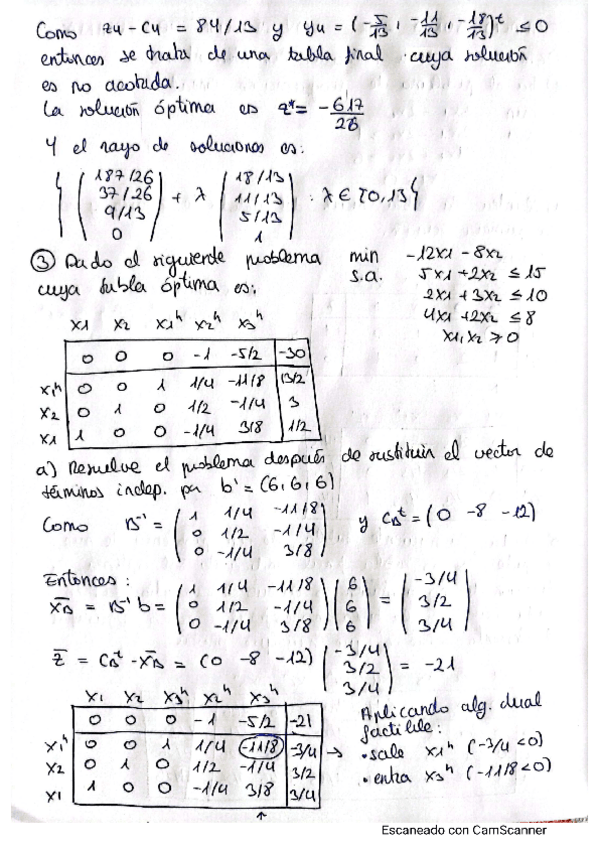 Como z4 - c4 = 84/13 y y4 = (-5/13, -11/13, -18/13)ᵗ ≤ 0
entonces se trata de una tabla final cuya solución
es no acotada.
La solución óptima es z* = -617/26
Y el rayo de soluciones es:
{ (187/26 37/26 9/13 0) + λ (18/13 11/13 5/13 1) : λ ∈ [0,13 }
③ Dado el siguiente problema min -12x1 - 8x2
cuya tabla óptima es: s.a. 5x1 + 2x2 ≤ 15
2x1 + 3x2 ≤ 10
4x1 + 2x2 ≤ 8
x1, x2 ≥ 0
x1 x2 x1ʰ x2ʰ x3ʰ
0 0 0 -1 -5/2 -30
x1ʰ 0 0 1 1/4 -11/8 13/2
x2 0 1 0 1/2 -1/4 3
x1 1 0 0 -1/4 3/8 1/2
a) Resuelve el problema después de sustituir el vector de
términos indep. pa b' = (6, 6, 6)
Como B⁻¹ = (1 1/4 -11/8 0 1/2 -1/4 0 -1/4 3/8) y CBᵗ = (0 -8 -12)
Entonces:
X̄B = B⁻¹ b = (1 1/4 -11/8 0 1/2 -1/4 0 -1/4 3/8) (6 6 6) = (-3/4 3/2 3/4)
z̄ = CBᵗ · X̄B = (0 -8 -12) (-3/4 3/2 3/4) = -21
x1 x2 x3ʰ x2ʰ x3ʰ
0 0 0 -1 -5/2 -21
x1ʰ 0 0 1 1/4 -11/8 -3/4 →
x2 0 1 0 1/2 -1/4 3/2
x1 1 0 0 -1/4 3/8 3/4
↑
Aplicando alg. dual
factible:
• sale x1ʰ (-3/4 < 0)
• entra x3ʰ (-11/8 < 0)
Escaneado con CamScanner